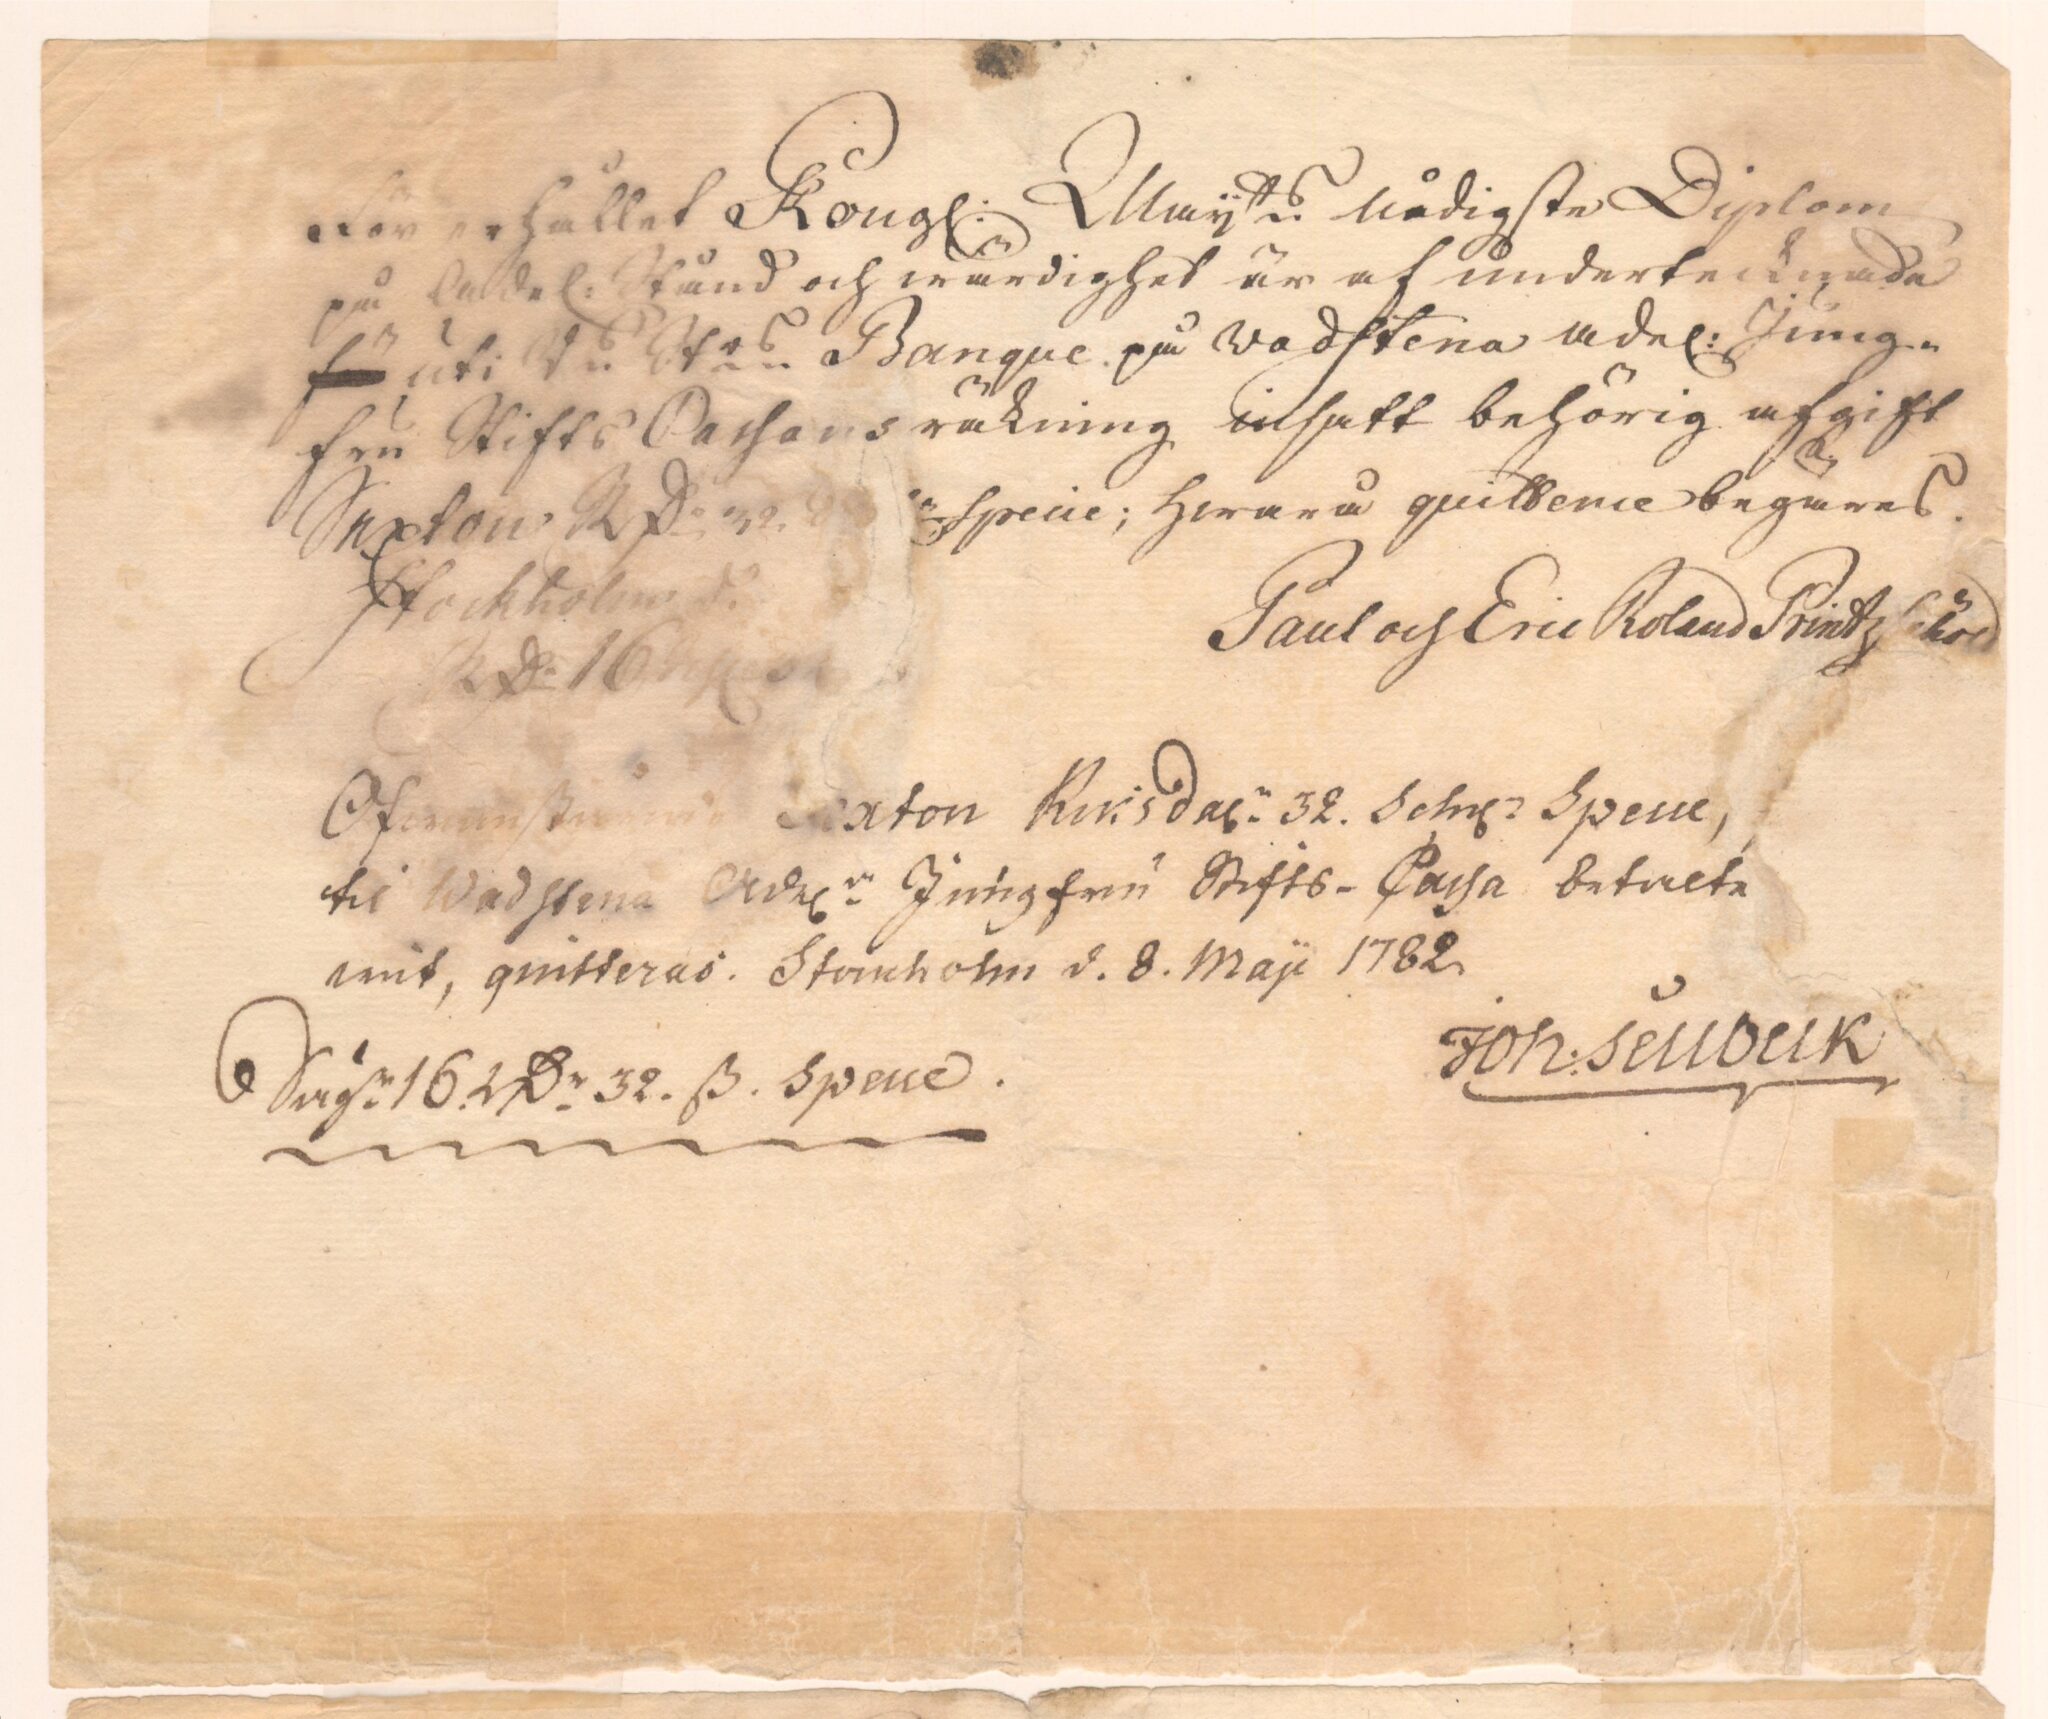 För erhållet Kongl: May:ts Nådigste Diplom
på Adel: Stånd och wärdighet är af undertecknade
uti Banque på Wadstena Adel: Jung-
fru Stifts Cassans räkning insatt behörig afgift
Sexton RDr 32. Specie; hwara quittence begäres.
Stockholm d.
Paul och Eric Roland Printzsköld
RDr 16
Ofwanstående Sexton Riksdalr 32. Schr Specie,
til Wadstena Adel:n Jungfru Stifts-Cassa betalte
wit, quitteras. Stockholm d. 8. Maji 1782
Säger 16 RDr 32. ß. Specie.
Joh: Seudelik